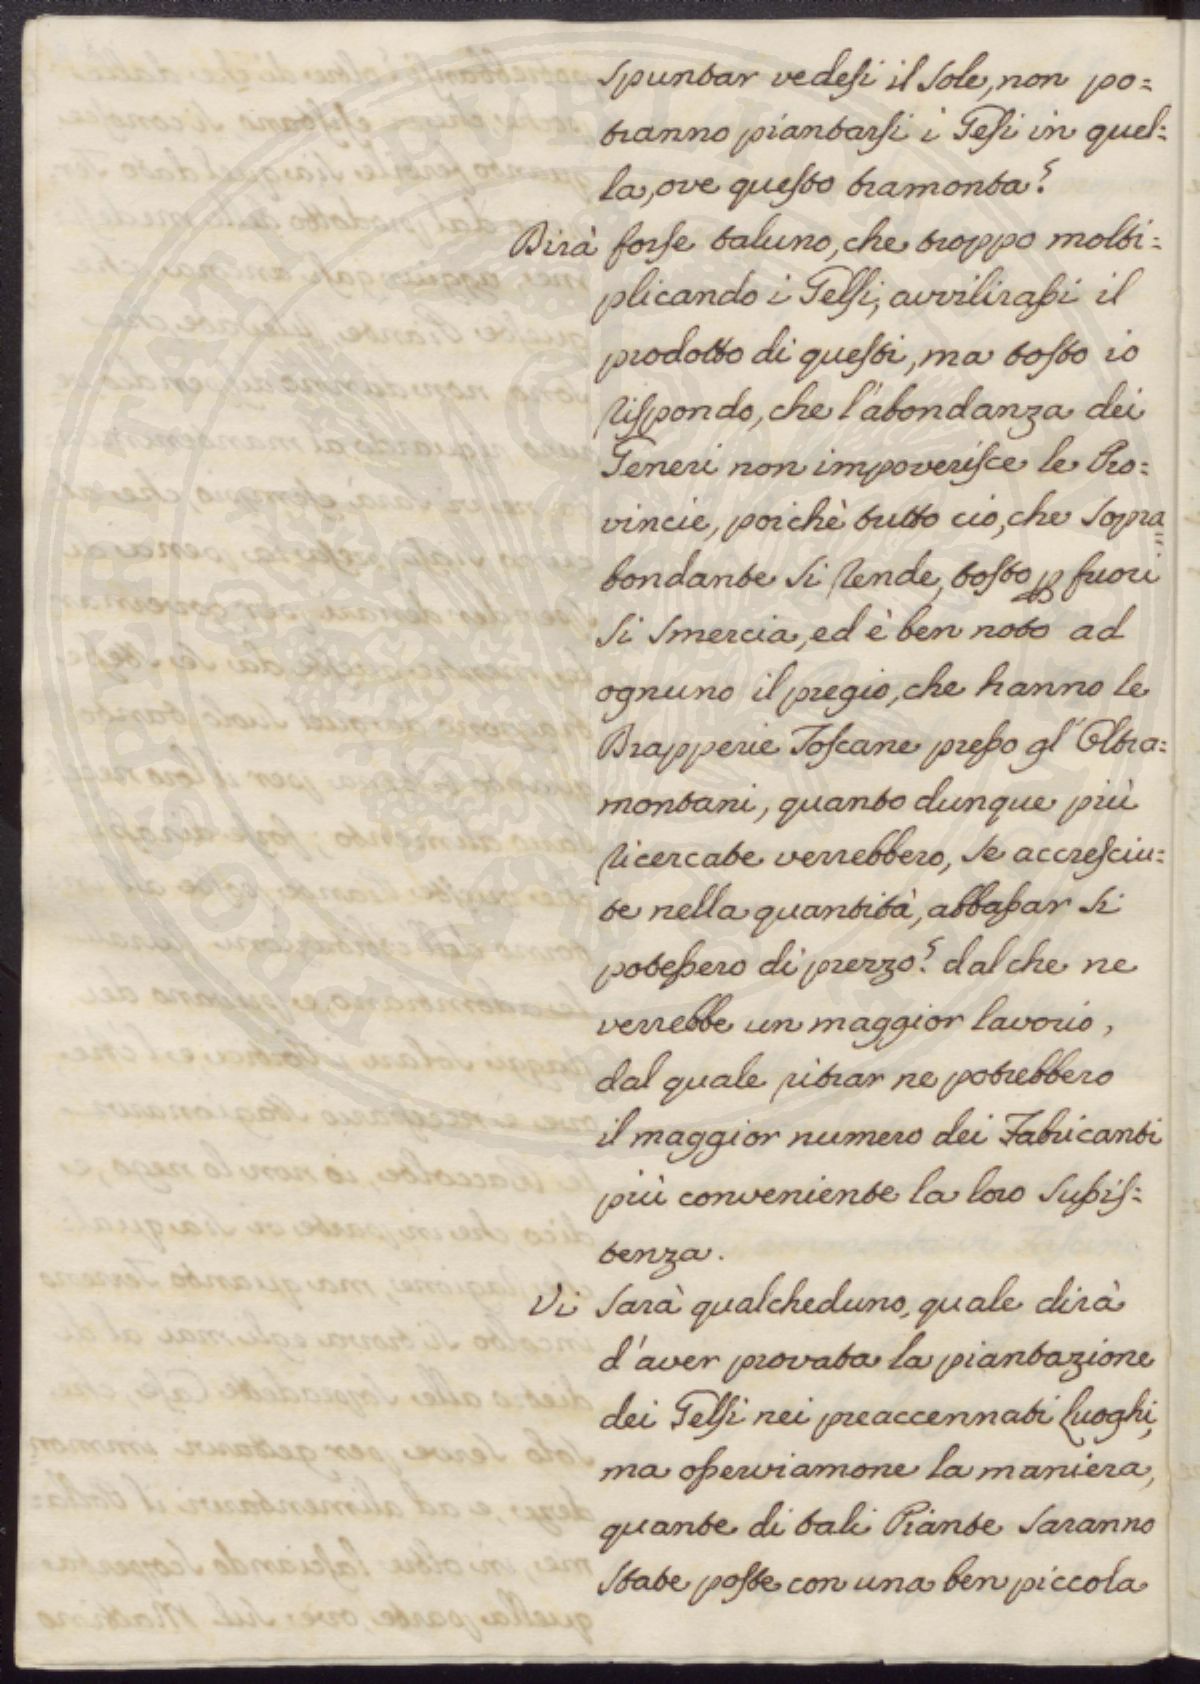 spuntar vedesi il Sole, non po=
tranno piantarsi i Gelsi in quel=
la, ove questo tramonta?
Dirà forse taluno, che troppo molti=
plicando i Gelsi, avvilirassi il
prodotto di questi, ma tosto io
rispondo, che l'abondanza dei
Generi non impoverisce le Pro=
vincie, poichè tutto ciò, che sopra=
bondante si rende, tosto p fuori
si smercia, ed è ben noto ad
ognuno il pregio, che hanno le
Drapperie Toscane presso gl'Oltra=
montani, quanto dunque più
ricercate verrebbero, se accresciu=
te nella quantità, abbassar si
potessero di prezzo? dal che ne
verrebbe un maggior lavorio,
dal quale ritrar ne potrebbero
il maggior numero dei Fabricanti
più conveniente la loro sussis=
tenza.
Vi sarà qualcheduno, quale dirà
d'aver provata la piantazione
dei Gelsi nei preaccennati Luoghi,
ma osserviamone la maniera,
quante di tali Piante saranno
state poste con una ben piccola